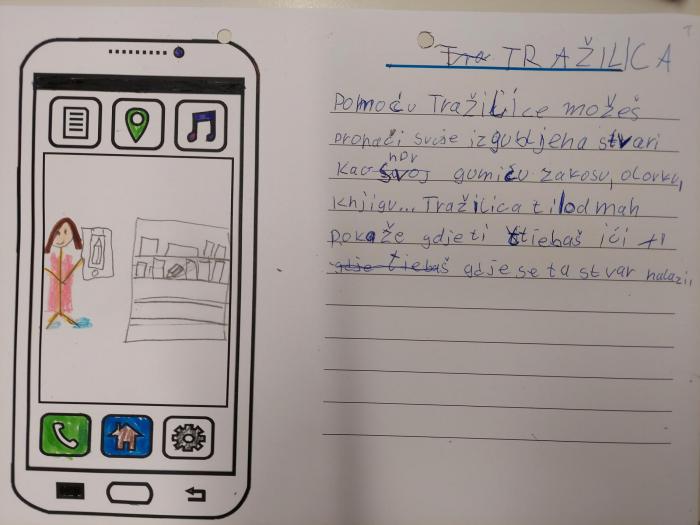 Tra TRAŽILICA
Pomoću Tražilice možeš
pronaći svoje izgubljena stvari
kao svoj npr gumicu za kosu, olovku,
knjigu... Tražilica ti odmah
pokaže gdje ti trebaš ići
gdje trebaš gdje se ta stvar nalazi,